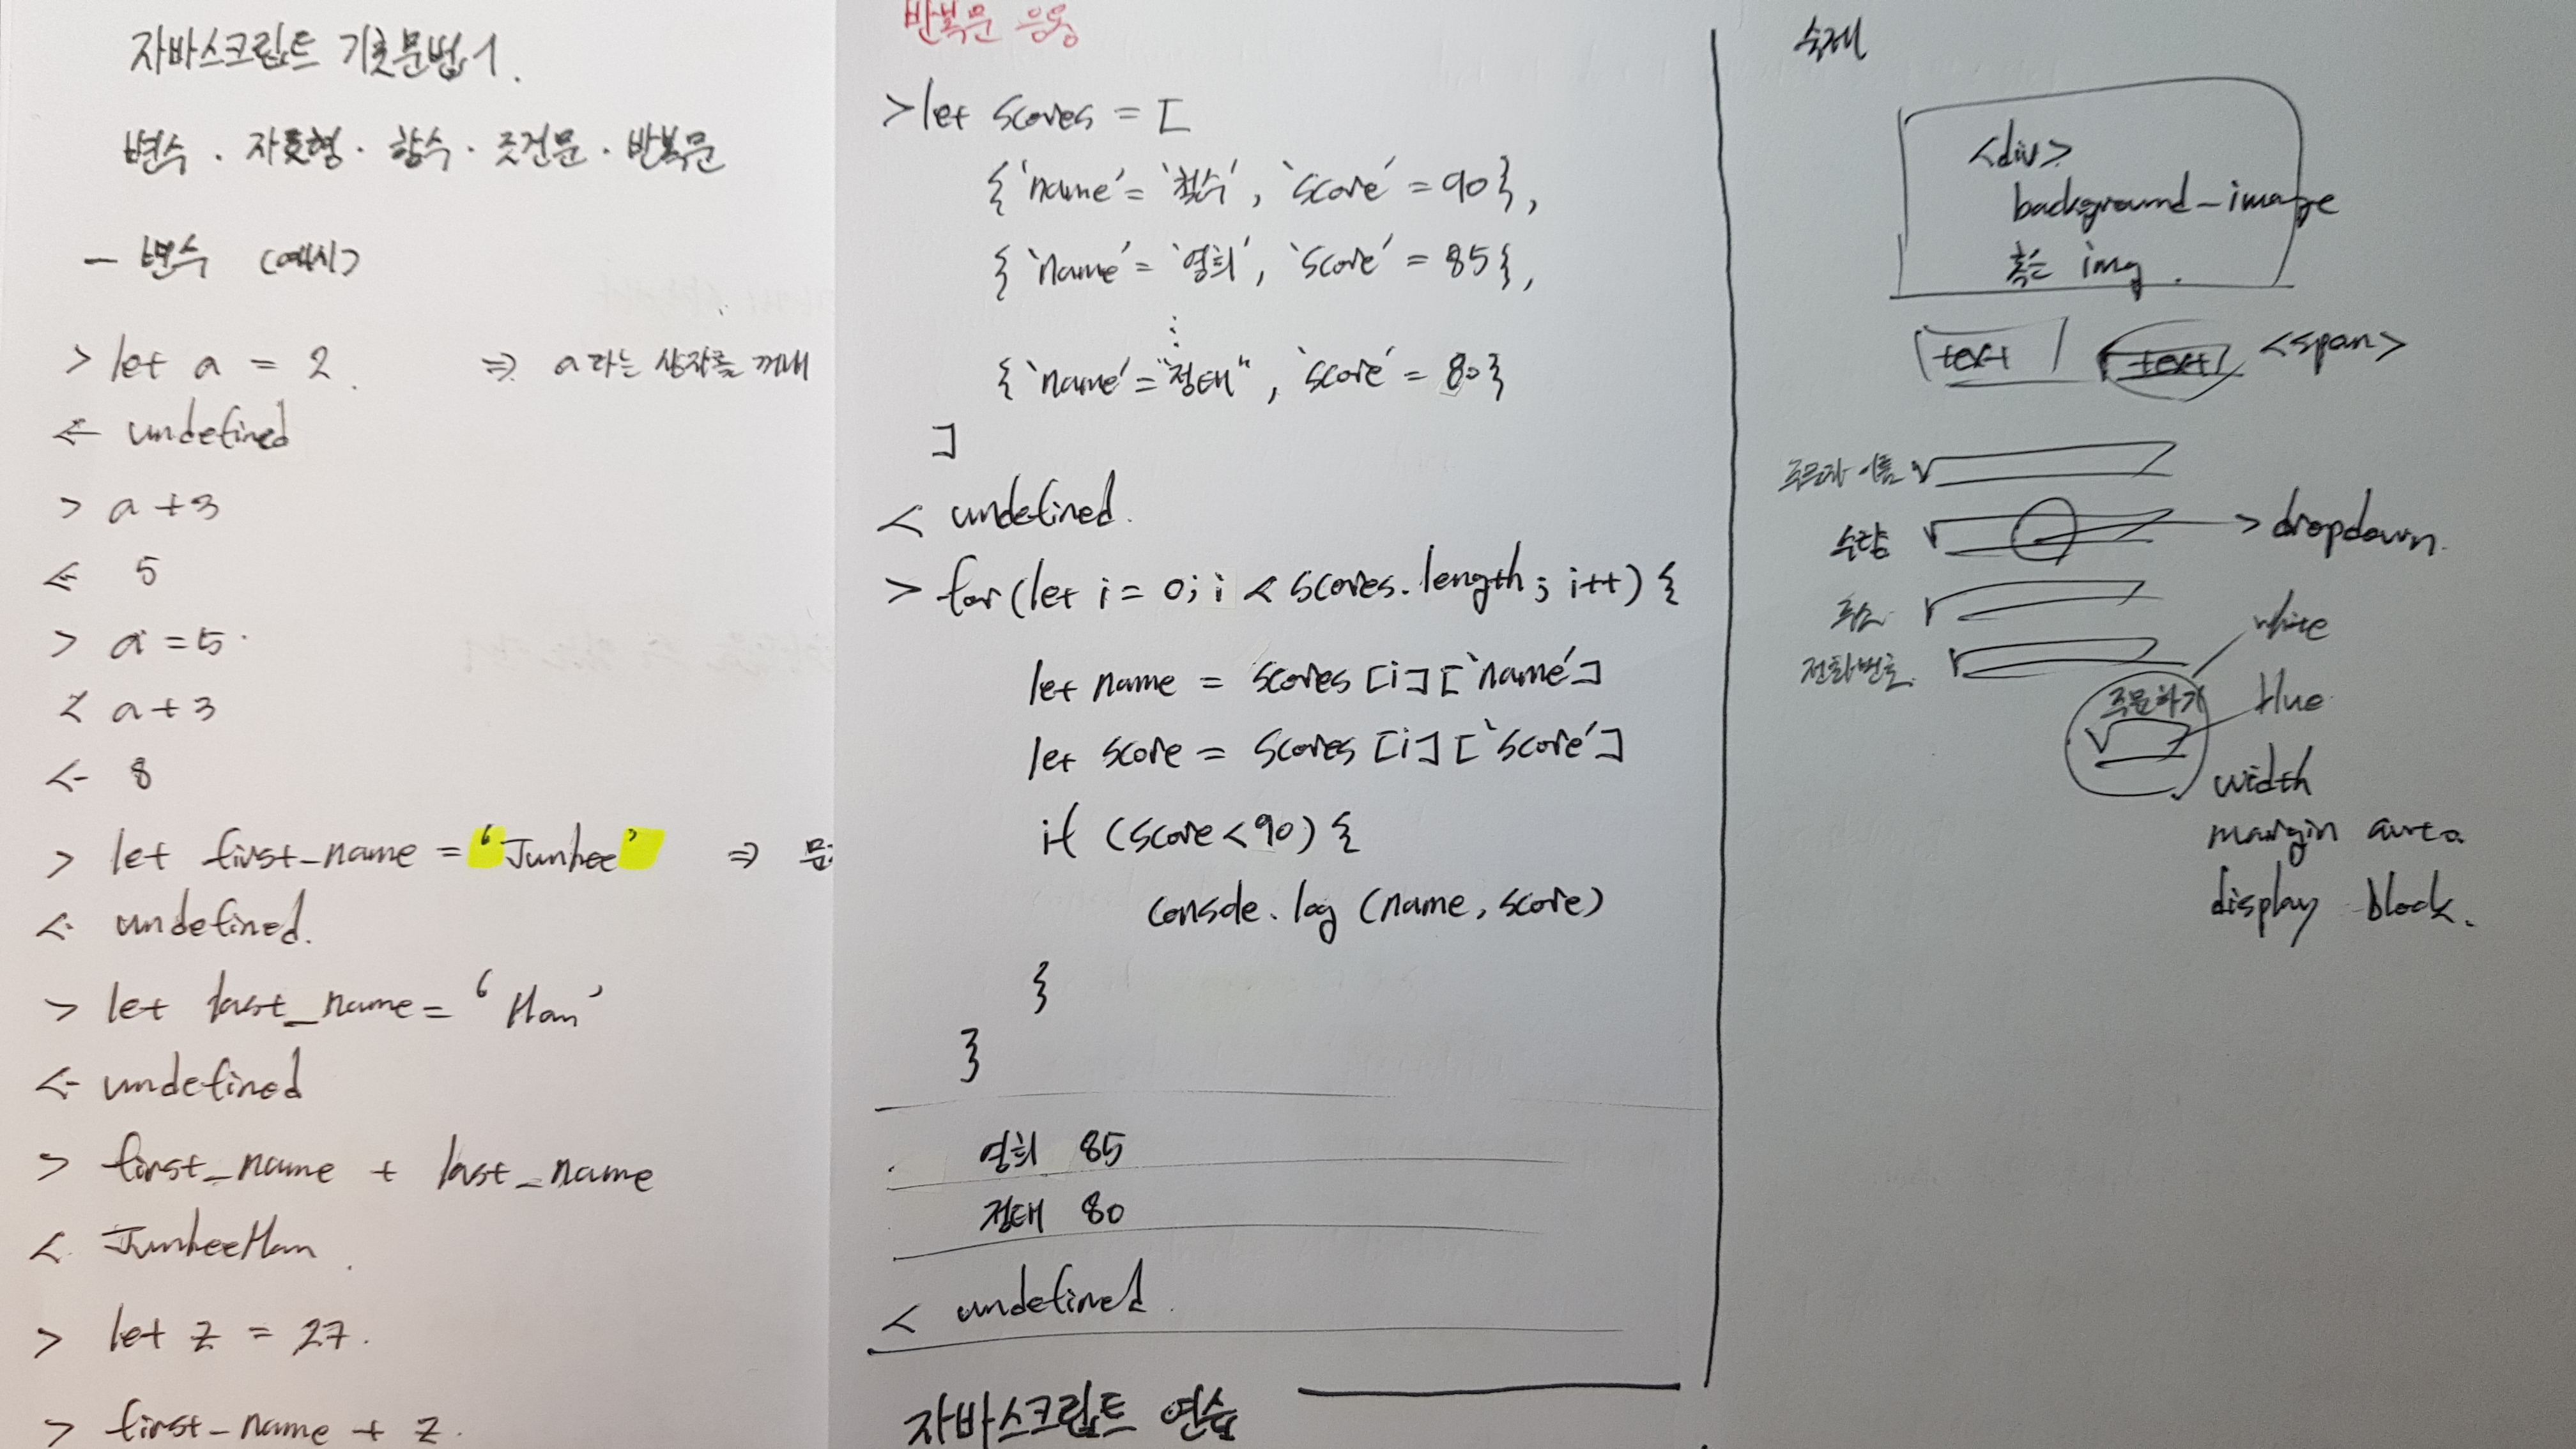 자바스크립트 기초문법 1.
변수 . 자료형 . 함수 . 조건문 . 반복문
- 변수 (예시)
> let a = 2. ⇒ a라는 상자를 꺼내
← undefined
> a+3
← 5
> a=5
< a+3
<- 8
> let first_name = 'Junhee' ⇒
<- undefined.
> let last_name = 'Han'
<- undefined
> first_name + last_name
< JunheeHan.
> let z = 27.
> first_name + z.
반복문 응용
> let scores = [
{'name'='철수', 'score'=90},
{'name'='영희', 'score'=85},
⋮
{'name'="정태", 'score'=80}
]
< undefined.
> for(let i = 0; i < scores.length; i++) {
let name = scores[i]['name']
let score = scores[i]['score']
if (score<90) {
console.log (name, score)
}
}
영희 85
정태 80
< undefined.
자바스크립트 연습
숙제
<div>
background-image
혹은 img.
text text <span>
주문자 이름
수량 > dropdown.
주소
전화번호.
white
주문하기
blue
width
margin auto
display block.